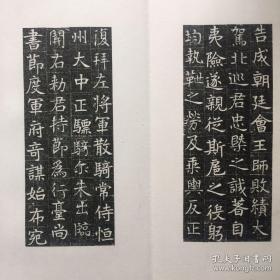 告成朝廷會王師敗績大
駕北巡君忠槩之誠著自
夷險遂親從斯扈之役躬
均執靮之勞及乘輿反正
復拜左將軍散騎常侍恒
州大中正驃騎尔朱出臨
關右勑君侍節為行臺尚
書節度軍府奇謀始布宛
孔夫子旧书网